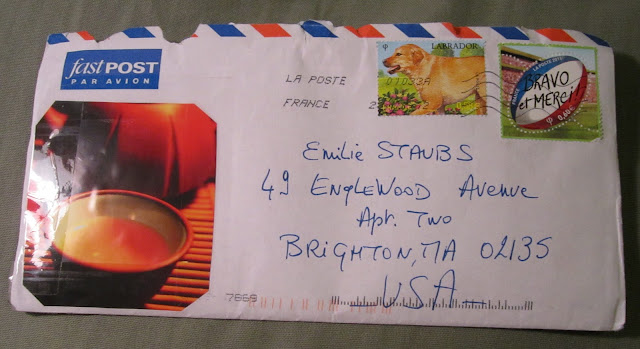 fastPOST
PAR AVION
LABRADOR
LA POSTE
FRANCE
BRAVO
et MERCI!
Emilie STAUBS
49 ENGLEWOOD Avenue
Apt. Two
BRIGHTON, MA 02135
USA